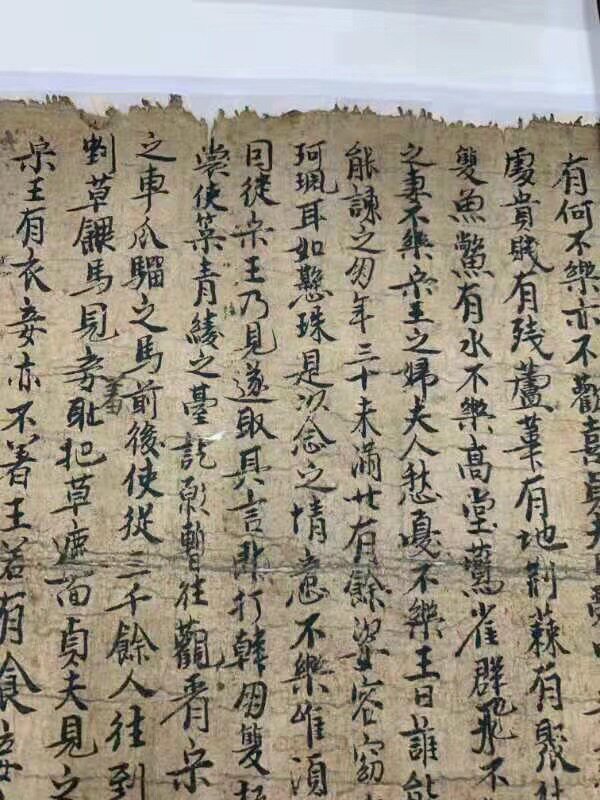 有何不樂亦不歡喜貞夫曰
處貴賤有殘蘆葦有地荆蕀有聚
雙魚鱉有水不樂高堂鷰雀群飛不
之妻不樂宋王之婦夫人愁憂不樂王曰誰能
能諫之朋年三十未滿廿有餘姿容窈
珂珮耳如懸珠是以念之情意不樂唯須
同徒宋王乃見遂取其言即打韓朋雙板
裳使築青綾之臺訖願暫往觀看宋
之車爪騮之馬前後使從三千餘人往到
剉草餵馬見妾羞恥把草遮面貞夫見之
宋王有衣妾亦不著王若有食妾